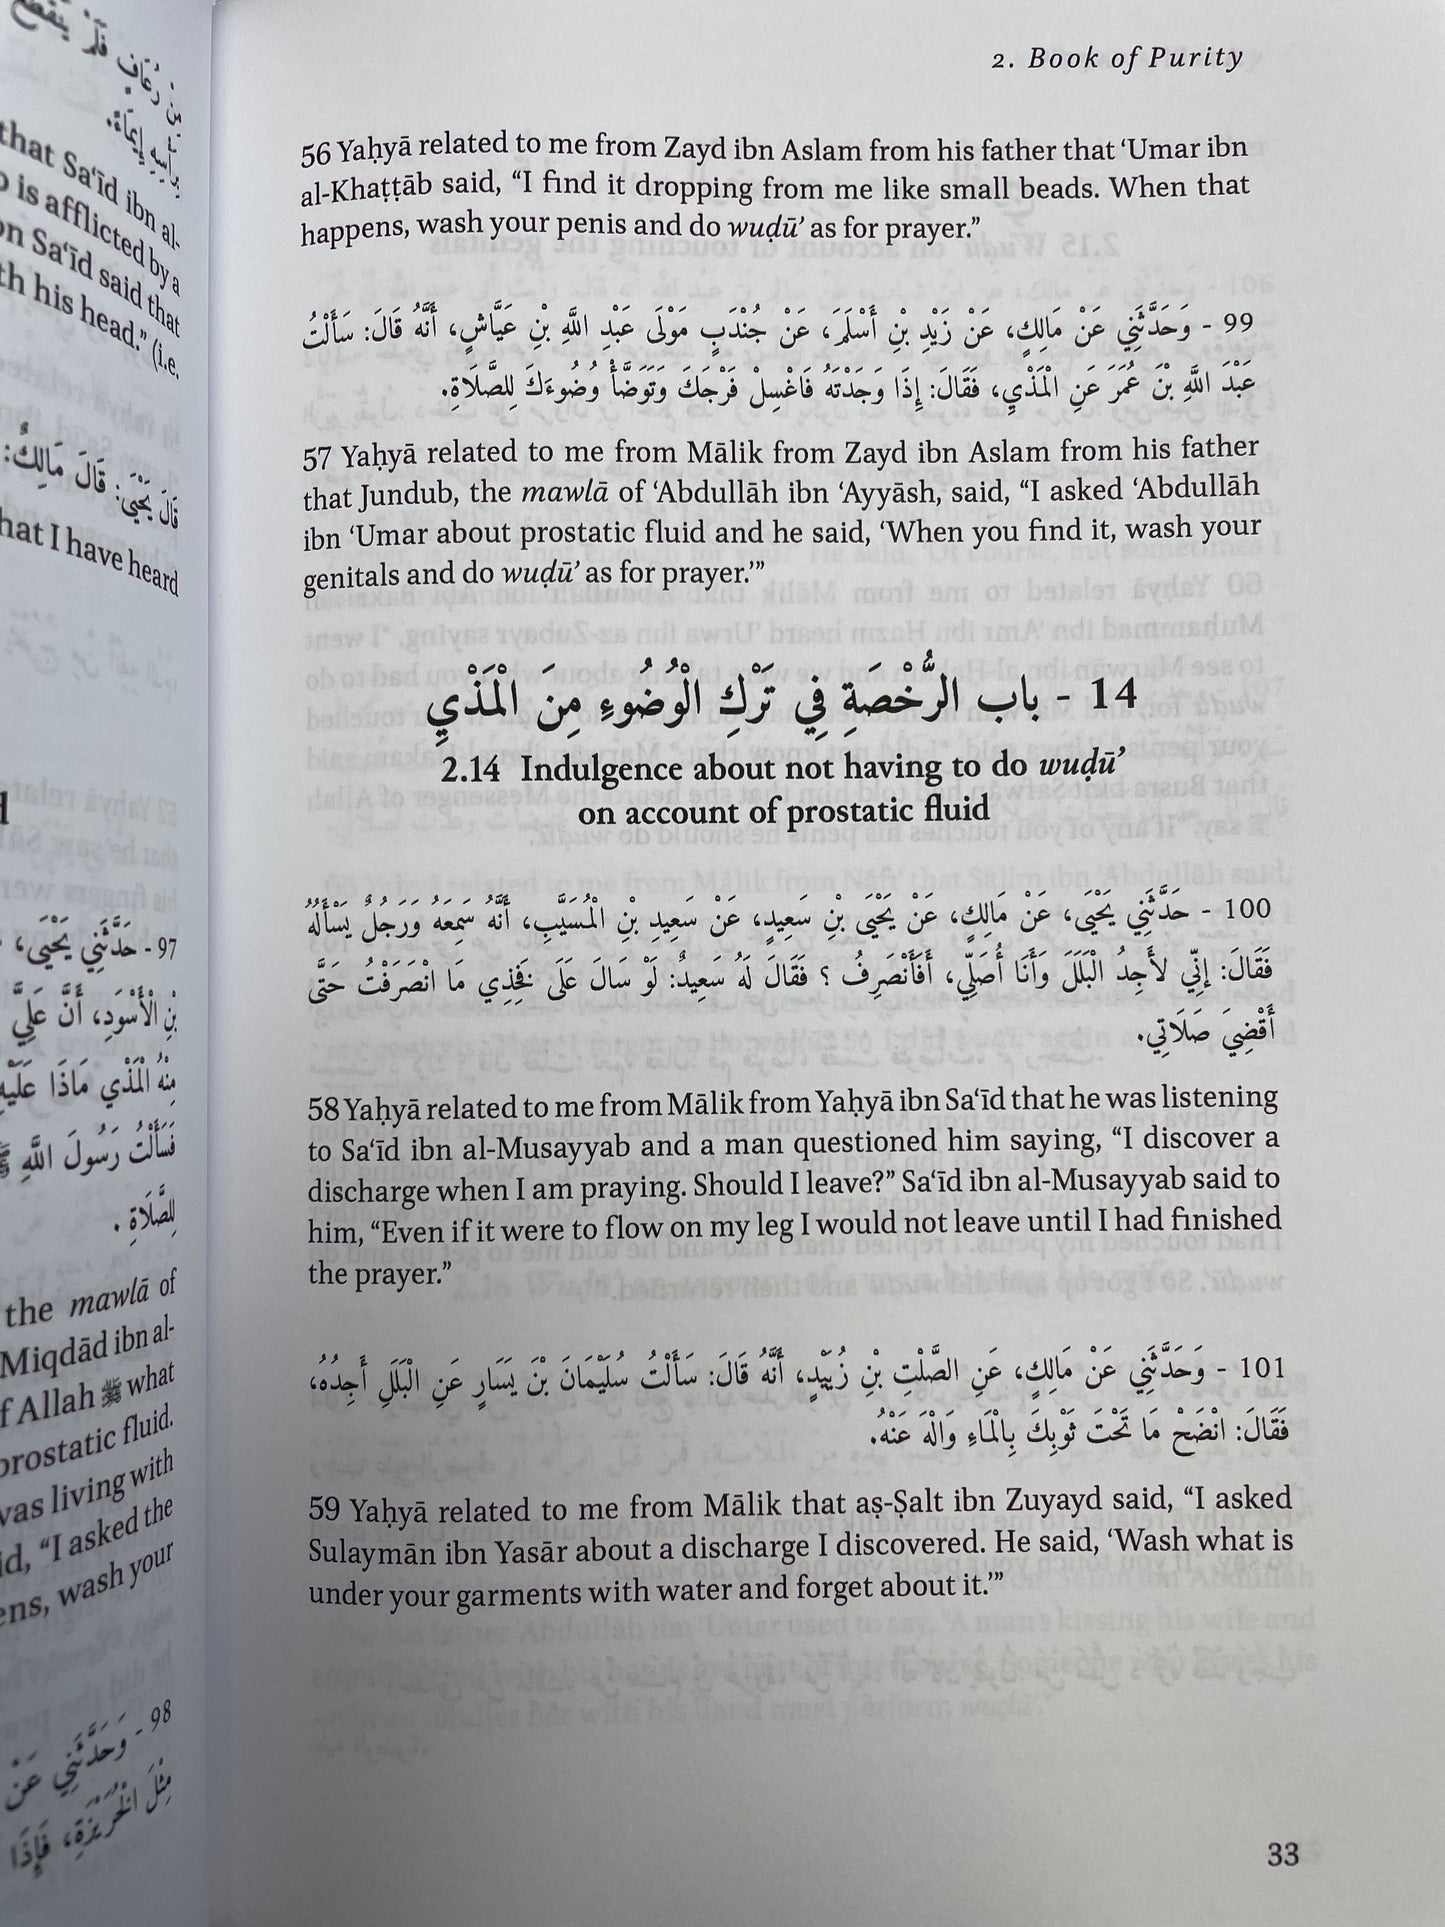 بِرَأْسِهِ إِيمَاءً.
that Sa‘īd ibn al-
is afflicted by a
Sa‘īd said that
his head.” (i.e.
قَالَ يَحْيَى: قَالَ مَالِكٌ:
that I have heard
97 - حَدَّثَنِي يَحْيَى،
بْنِ الْأَسْوَدِ، أَنَّ عَلِيَّ
مِنْهُ الْمَذْي مَاذَا عَلَيْهِ
فَسَأَلْتُ رَسُولَ اللَّهِ ﷺ
لِلصَّلَاةِ .
the mawlā of
Miqdād ibn al-
of Allah ﷺ what
prostatic fluid.
was living with
“I asked the
wash your
98 - وَحَدَّثَنِي عَنْ
مِثْلَ الْخُرَيْزَةِ، فَإِذَا
2. Book of Purity
56 Yaḥyā related to me from Zayd ibn Aslam from his father that ‘Umar ibn
al-Khaṭṭāb said, “I find it dropping from me like small beads. When that
happens, wash your penis and do wuḍū’ as for prayer.”
99 - وَحَدَّثَنِي عَنْ مَالِكٍ، عَنْ زَيْدِ بْنِ أَسْلَمَ، عَنْ جُنْدَبٍ مَوْلَى عَبْدِ اللَّهِ بْنِ عَيَّاشٍ، أَنَّهُ قَالَ: سَأَلْتُ
عَبْدَ اللَّهِ بْنَ عُمَرَ عَنِ الْمَذْيِ، فَقَالَ: إِذَا وَجَدْتَهُ فَاغْسِلْ فَرْجَكَ وَتَوَضَّأْ وُضُوءَكَ لِلصَّلَاةِ.
57 Yaḥyā related to me from Mālik from Zayd ibn Aslam from his father
that Jundub, the mawlā of ‘Abdullāh ibn ‘Ayyāsh, said, “I asked ‘Abdullāh
ibn ‘Umar about prostatic fluid and he said, ‘When you find it, wash your
genitals and do wuḍū’ as for prayer.’”
14 - باب الرُّخْصَةِ فِي تَرْكِ الْوُضُوءِ مِنَ الْمَذْيِ
2.14 Indulgence about not having to do wuḍū’
on account of prostatic fluid
100 - حَدَّثَنِي يَحْيَى، عَنْ مَالِكٍ، عَنْ يَحْيَى بْنِ سَعِيدٍ، عَنْ سَعِيدِ بْنِ الْمُسَيَّبِ، أَنَّهُ سَمِعَهُ وَرَجُلٌ يَسْأَلُهُ
فَقَالَ: إِنِّي لأَجِدُ الْبَلَلَ وَأَنَا أُصَلِّي، أَفَأَنْصَرِفُ ؟ فَقَالَ لَهُ سَعِيدٌ: لَوْ سَالَ عَلَى فَخِذِي مَا انْصَرَفْتُ حَتَّى
أَقْضِيَ صَلَاتِي.
58 Yaḥyā related to me from Mālik from Yaḥyā ibn Sa‘īd that he was listening
to Sa‘īd ibn al-Musayyab and a man questioned him saying, “I discover a
discharge when I am praying. Should I leave?” Sa‘īd ibn al-Musayyab said to
him, “Even if it were to flow on my leg I would not leave until I had finished
the prayer.”
101 - وَحَدَّثَنِي عَنْ مَالِكٍ، عَنِ الصَّلْتِ بْنِ زُيَيْدٍ، أَنَّهُ قَالَ: سَأَلْتُ سُلَيْمَانَ بْنَ يَسَارٍ عَنِ الْبَلَلِ أَجِدُهُ،
فَقَالَ: انْضَحْ مَا تَحْتَ ثَوْبِكَ بِالْمَاءِ وَالْهَ عَنْهُ.
59 Yaḥyā related to me from Mālik that aṣ-Ṣalt ibn Zuyayd said, “I asked
Sulaymān ibn Yasār about a discharge I discovered. He said, ‘Wash what is
under your garments with water and forget about it.’”
33